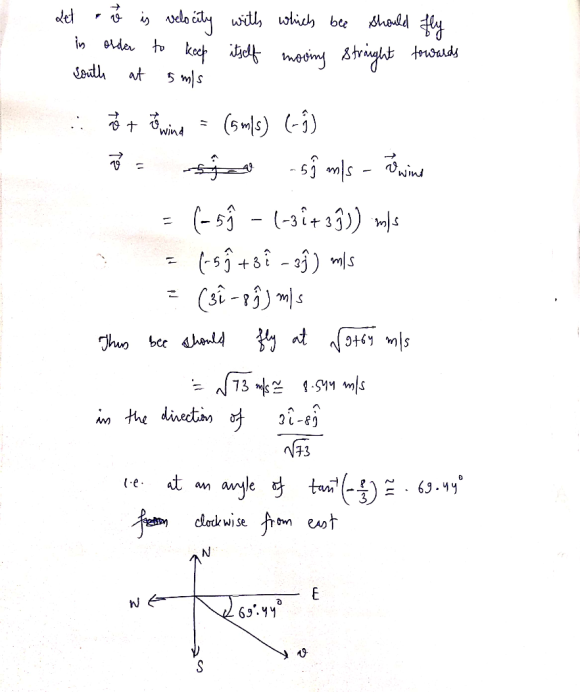 Let • v⃗ is velocity with which bee should fly
in order to keep itself moving straight towards
south at 5 m/s
∴ v⃗ + v⃗wind = (5m/s) (-ĵ)
v⃗ = -5ĵ m/s - v⃗wind
= (-5ĵ - (-3î+3ĵ)) m/s
= (-5ĵ +3î - 3ĵ) m/s
= (3î - 8ĵ) m/s
Thus bee should fly at √9+64 m/s
= √73 m/s ≅ 8.544 m/s
in the direction of 3î-8ĵ
√73
i.e. at an angle of tan⁻¹(-8/3) ≅ . 69.44°
clockwise from east
N
W
E
69°.44°
S
v